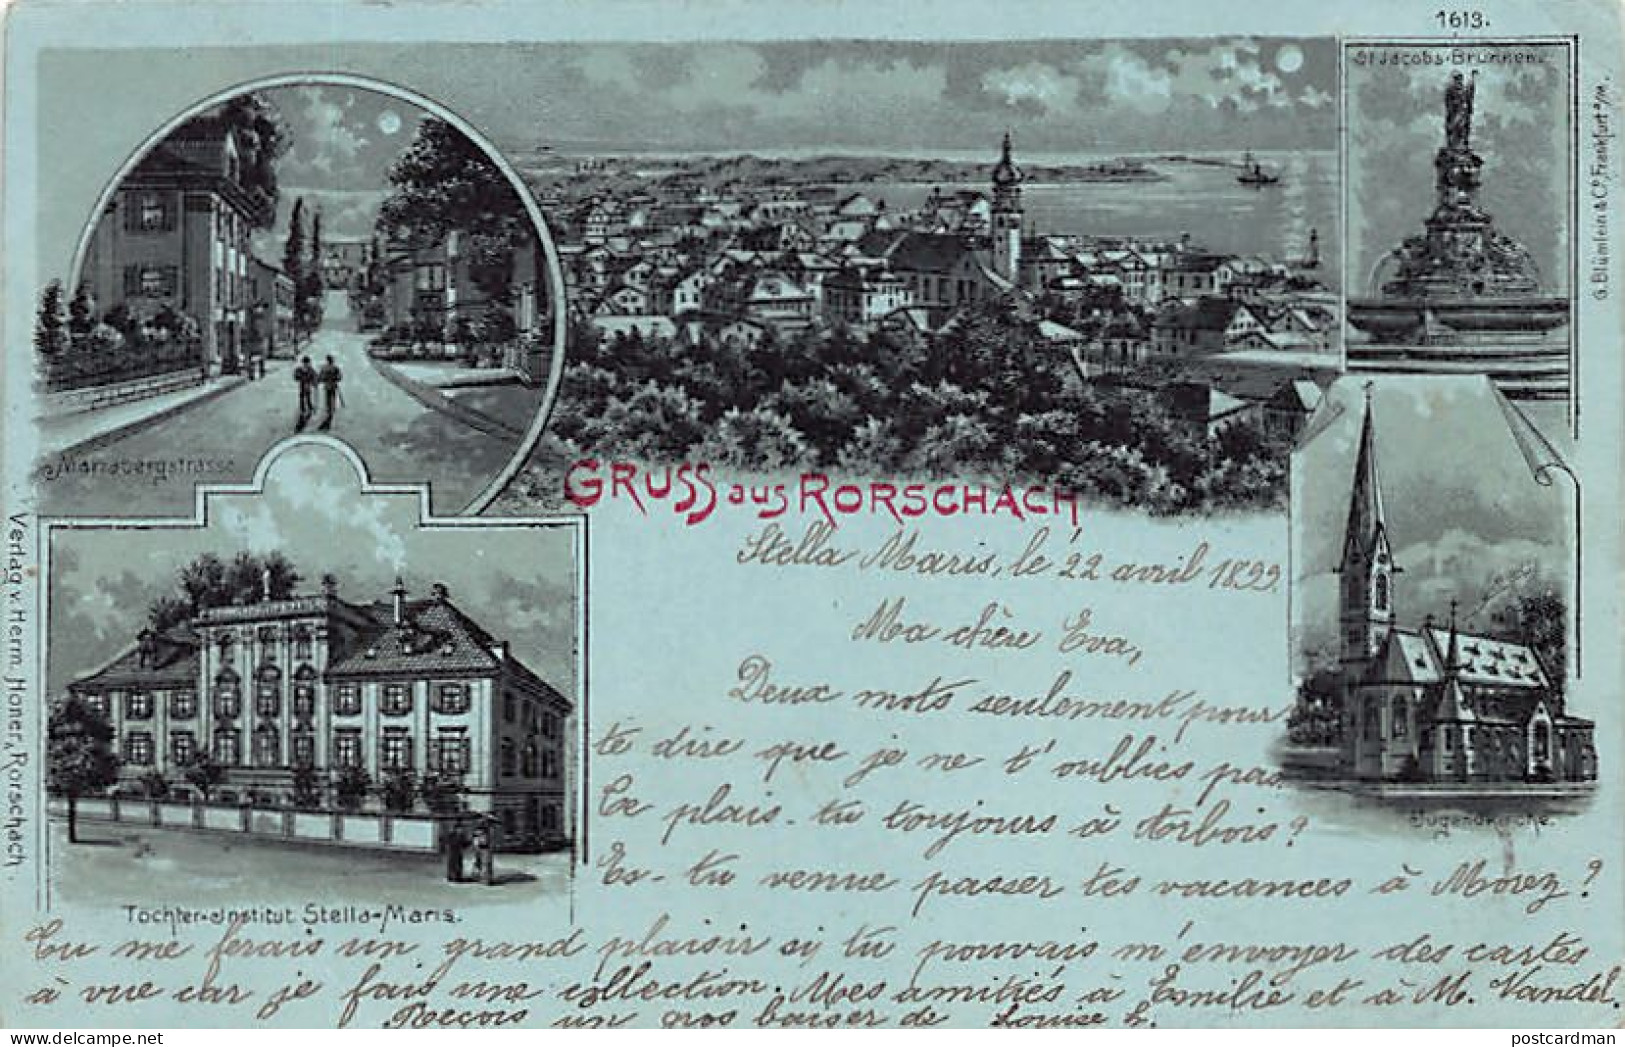 1613.
St Jacobs-Brunnen.
G. Blümlein & Co. Frankfurt a/M.
Mariabergstrasse
GRUSS aus RORSCHACH
Stella Maris, le 22 avril 1899.
Ma chère Eva,
Deux mots seulement pour
te dire que je ne t'oublies pas.
Te plais-tu toujours à Arbois?
Es-tu venue passer tes vacances à Morez?
Tu me ferais un grand plaisir si tu pouvais m'envoyer des cartes
à vue car je fais une collection. Mes amitiés à Emilie et à M. Vandel.
Reçois un gros baiser de Louise L.
Jugendkirche.
Töchter-Institut Stella-Maris.
Verlag v. Herm. Honer, Rorschach.
postcardman